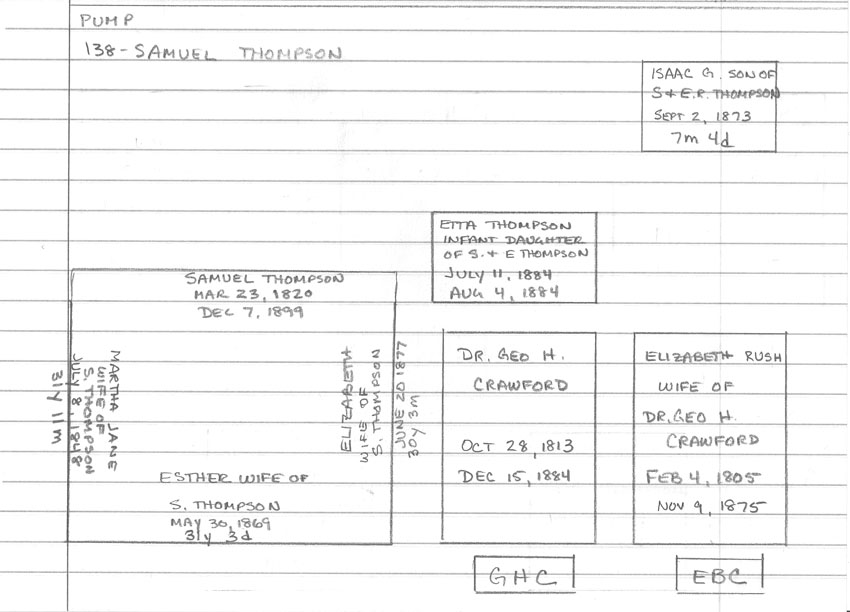 PUMP
138-SAMUEL THOMPSON
ISAAC G. SON OF
S + E.R. THOMPSON
SEPT 2, 1873
7m 4d
ETTA THOMPSON
INFANT DAUGHTER
OF S. + E THOMPSON
JULY 11, 1884
AUG 4, 1884
SAMUEL THOMPSON
MAR 23, 1820
DEC 7, 1899
MARTHA JANE
WIFE OF
S. THOMPSON
JULY 8, 1848
31y 11m
ELIZABETH
WIFE OF
S. THOMPSON
JUNE 20 1877
30y 3m
ESTHER WIFE OF
S. THOMPSON
MAY 30, 1869
31y 3d
DR. GEO H.
CRAWFORD
OCT 28, 1813
DEC 15, 1884
ELIZABETH RUSH
WIFE OF
DR. GEO H.
CRAWFORD
FEB 4, 1805
NOV 9, 1875
GHC
EBC